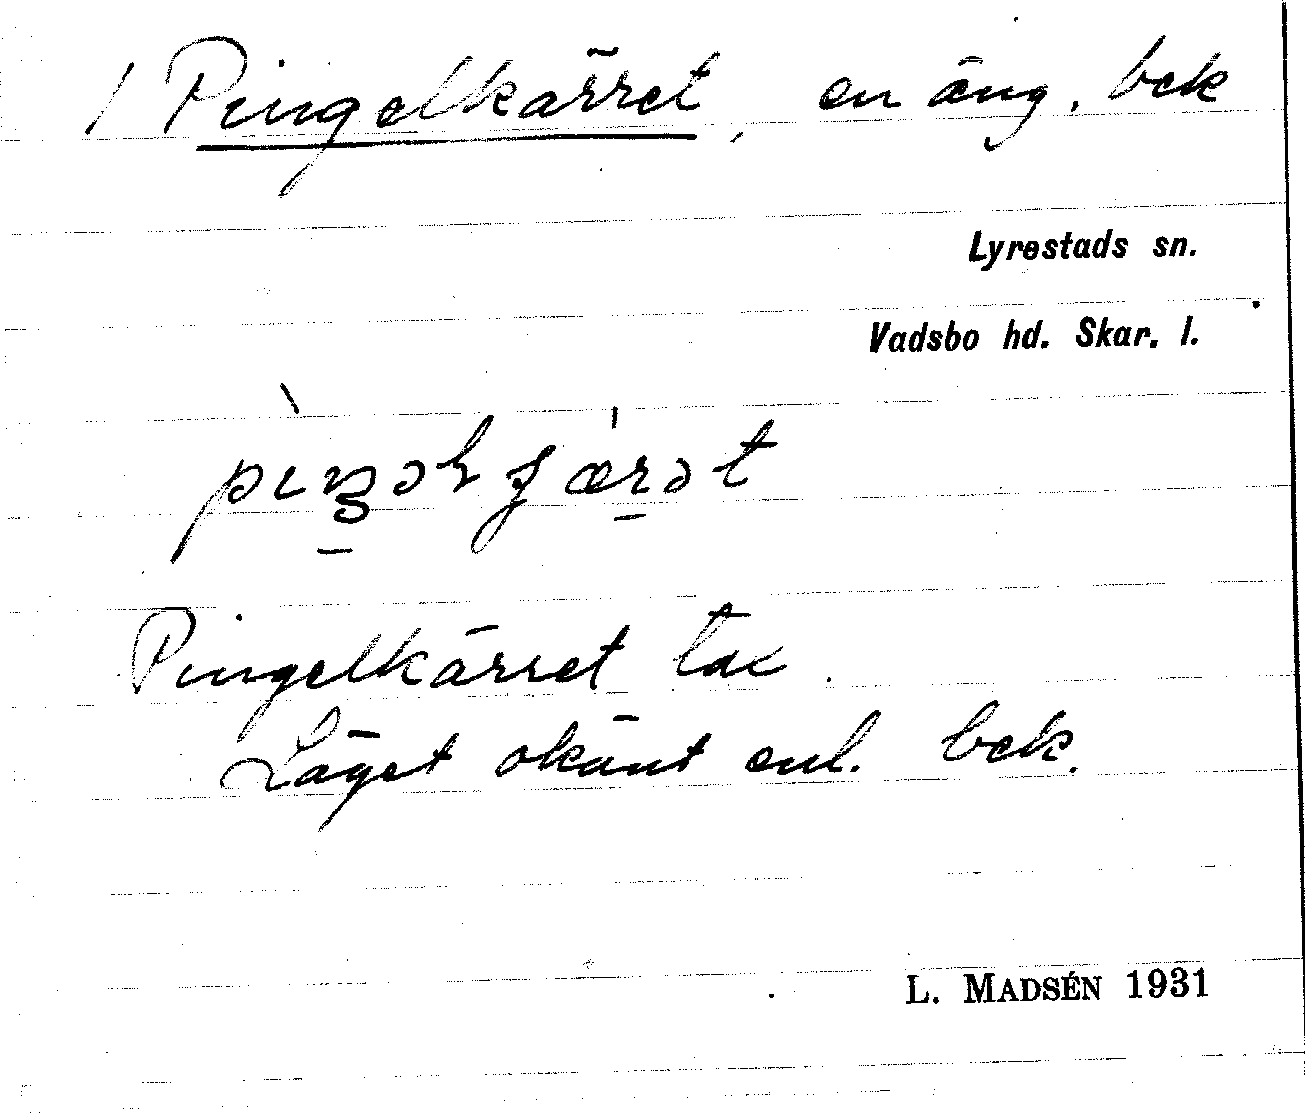 / Pingelkärret, en äng. bek
Lyrestads sn.
Vadsbo hd. Skar. l.
Pingelkärret tax.
Läget okänt enl. bek.
L. MADSÉN 1931